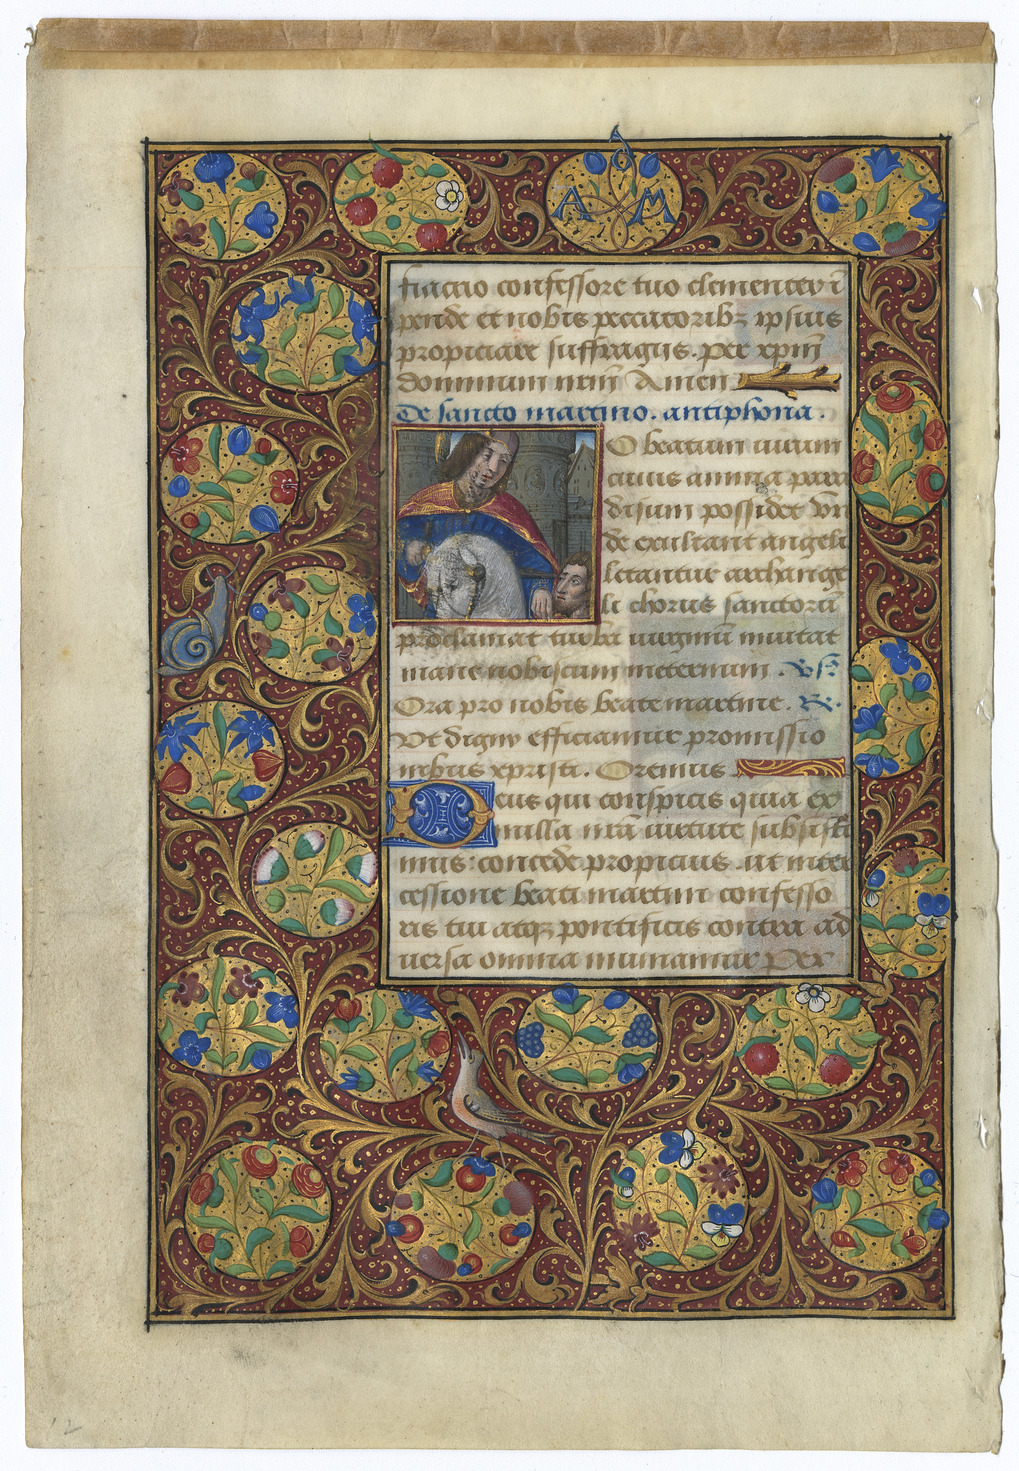 A M
fiacrio confessore tuo clementer ī
pende et nobis peccatoribꝫ ipsius
propiciare suffragiis. Per xp̄m̄
dominum nr̄m̄ Amen
De sancto martino. antiphona.
O beatum uirum
cuius anima para
disum possidet vn
de exultant angeli
letantur archange
li chorus sanctorū
proclamat turba uirginū inuitat
mane nobiscum ineternum. vs̄.
Ora pro nobis beate martine. R.
Vt digni efficiamur promissio
nibus xpristi. Oremus
Deus qui conspicis quia ex
nulla nr̄a uirtute subsisti
mus: concede propicius. ut inter
cessione beati martini confesso
ris tui atqꝫ pontificis contra ad
uersa omnia muniamur Per
12